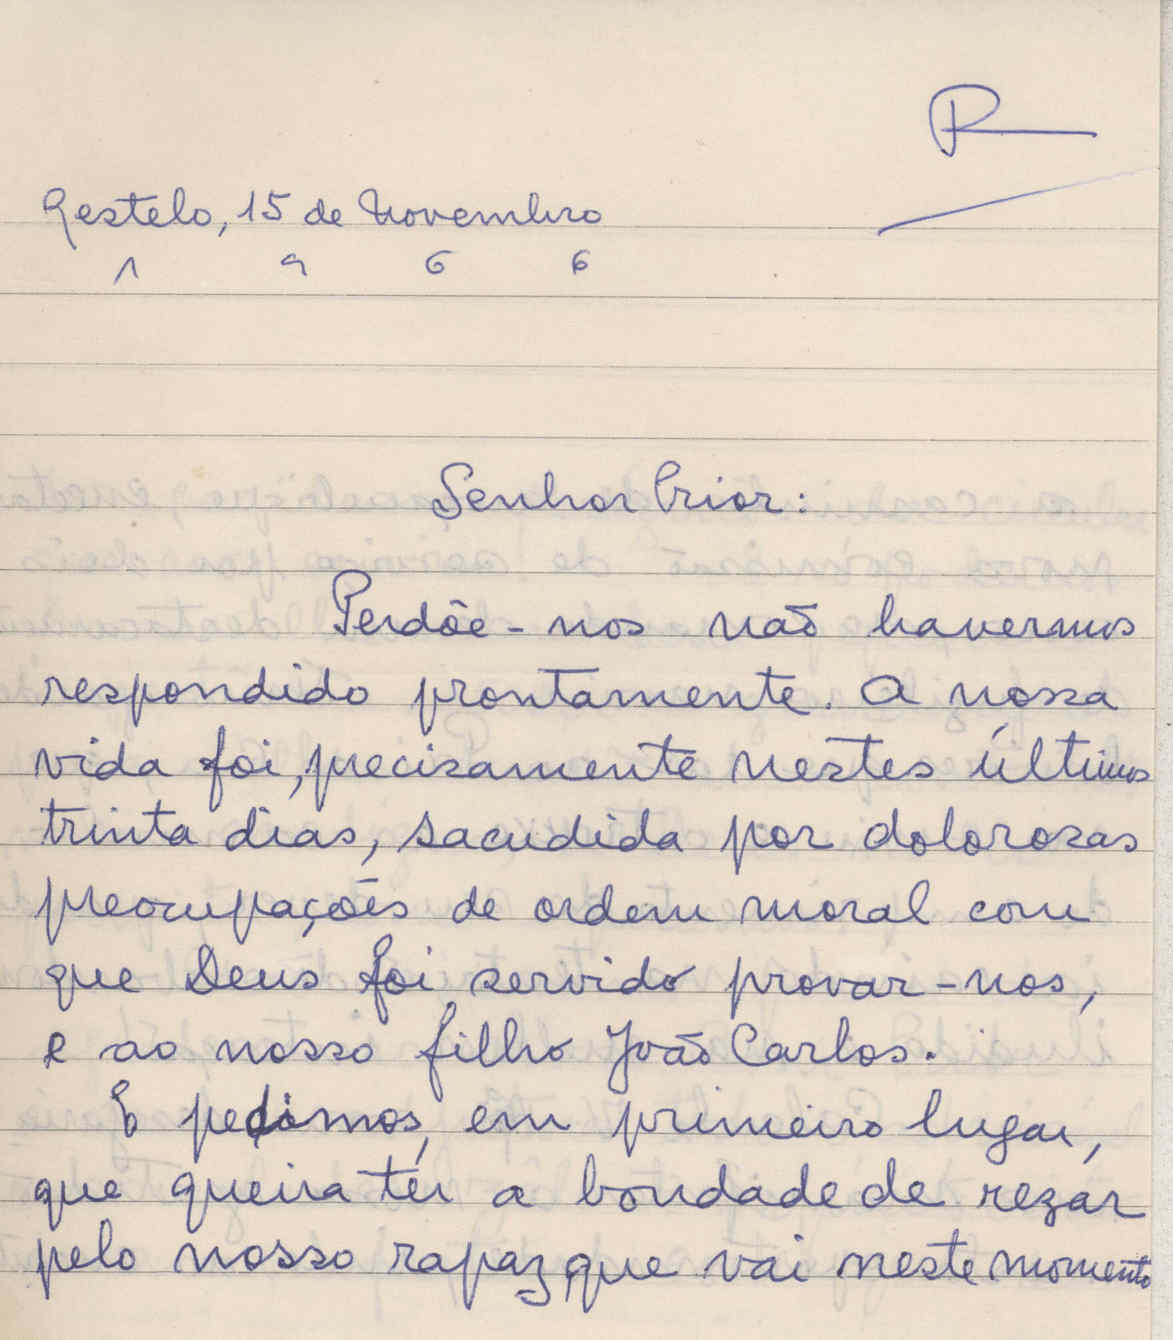 R
Restelo, 15 de Novembro
1 9 6 6
Senhor Prior:
Perdôe-nos não havermos
respondido prontamente. A nossa
vida foi, precisamente nestes últimos
trinta dias, sacudida por dolorosas
preocupações de ordem moral com
que Deus foi servido provar-nos,
e ao nosso filho João Carlos.
E pedimos, em primeiro lugar,
que queira ter a bondade de rezar
pelo nosso rapaz, que vai neste momento